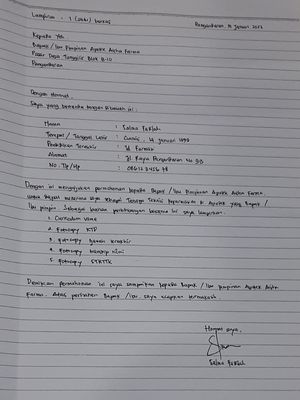 Lampiran : 1 (satu) berkas
Pangandaran, Januari 2022
Kepada Yth
Bapak / Ibu Pimpinan Apotek Aisha Farma
Pasar Desa Blok B-10
Pangandaran
Dengan Hormat,
Saya yang bertanda tangan dibawah ini :
Nama : Salma
Tempat / Tanggal Lahir : Ciamis, 14 Januari
Pendidikan Terakhir : Farmasi
Alamat : Jl. Raya Pangandaran No
No. Tlp / Hp : 08612345678
Dengan ini mengajukan permohonan kepada Bapak / Ibu Pimpinan Apotek Aisha Farma,
untuk dapat Tenaga Teknis Kefarmasian di Apotek yang Bapak /
Ibu pimpin. Sebagai bahan pertimbangan bersama ini saya lampirkan :
1. Curriculum Vitae
2. Fotocopy KTP
3. Fotocopy Ijazah terakhir
4. Fotocopy transkip nilai
5. Fotocopy STRTTK
Demikian permohonan ini saya sampaikan kepada Bapak / Ibu Pimpinan Apotek Aisha
Farma. Atas perhatian Bapak / Ibu, saya ucapkan terimakasih.
Hormat saya,
Salma